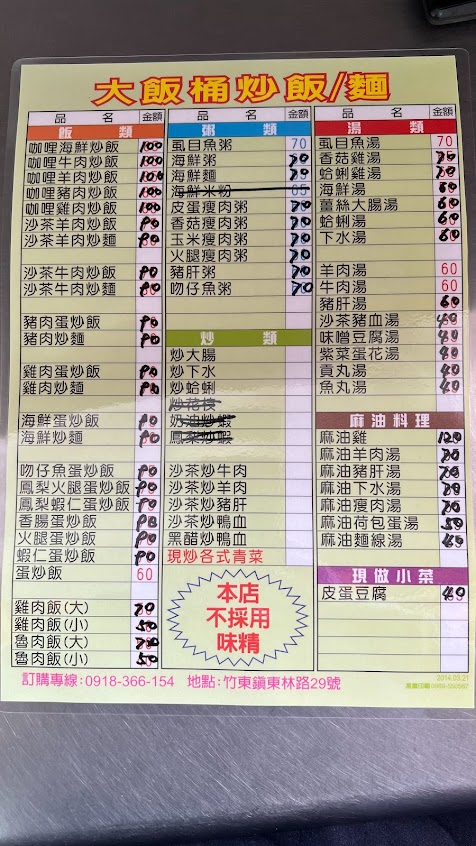 大飯桶炒飯/麵
品 名 金額
飯 類
咖哩海鮮炒飯 100
咖哩牛肉炒飯 100
咖哩羊肉炒飯 100
咖哩豬肉炒飯 100
咖哩雞肉炒飯 100
沙茶羊肉炒飯 90
沙茶羊肉炒麵 90
沙茶牛肉炒飯 90
沙茶牛肉炒麵 90
豬肉蛋炒飯 90
豬肉炒麵 90
雞肉蛋炒飯 90
雞肉炒麵 90
海鮮蛋炒飯 90
海鮮炒麵 90
吻仔魚蛋炒飯 90
鳳梨火腿蛋炒飯 90
鳳梨蝦仁蛋炒飯 90
香腸蛋炒飯 90
火腿蛋炒飯 90
蝦仁蛋炒飯 90
蛋炒飯 60
雞肉飯(大) 70
雞肉飯(小) 50
魯肉飯(大) 70
魯肉飯(小) 50
品 名 金額
粥 類
虱目魚粥 70
海鮮粥 70
海鮮麵 70
海鮮米粉 65
皮蛋瘦肉粥 70
香菇瘦肉粥 70
玉米瘦肉粥 70
火腿瘦肉粥 70
豬肝粥 70
吻仔魚粥 70
炒 類
炒大腸
炒下水
炒蛤蜊
奶油炒蝦
鳳梨炒蝦
沙茶炒牛肉
沙茶炒羊肉
沙茶炒豬肝
沙茶炒鴨血
黑醋炒鴨血
現炒各式青菜
本店
不採用
味精
品 名 金額
湯 類
虱目魚湯 70
香菇雞湯 70
蛤蜊雞湯 70
海鮮湯 60
薑絲大腸湯 60
蛤蜊湯 60
下水湯 60
羊肉湯 60
牛肉湯 60
豬肝湯 60
沙茶豬血湯 40
味噌豆腐湯 40
紫菜蛋花湯 40
貢丸湯 40
魚丸湯 40
麻油料理
麻油雞 120
麻油羊肉湯 70
麻油豬肝湯 70
麻油下水湯 70
麻油瘦肉湯 70
麻油荷包蛋湯 50
麻油麵線湯 40
現做小菜
皮蛋豆腐 40
訂購專線:0918-366-154 地點:竹東鎮東林路29號
2014.03.21